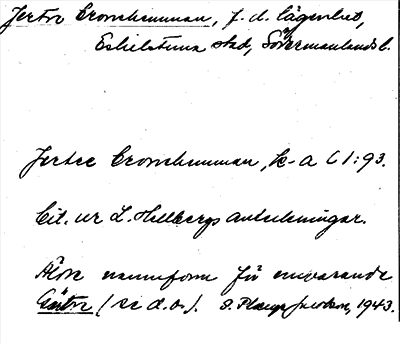 Jertre Cronohemman, f. d. lägenhet,
Eskilstuna stad, Södermanlands l.
Jertee Cronohemman, k-a C 1:93.
Cit. ur L. Hellbergs anteckningar.
Äldre namnform för nuvarande
Gärtre (se d.o.). S. Plænge Jacobson, 1943.